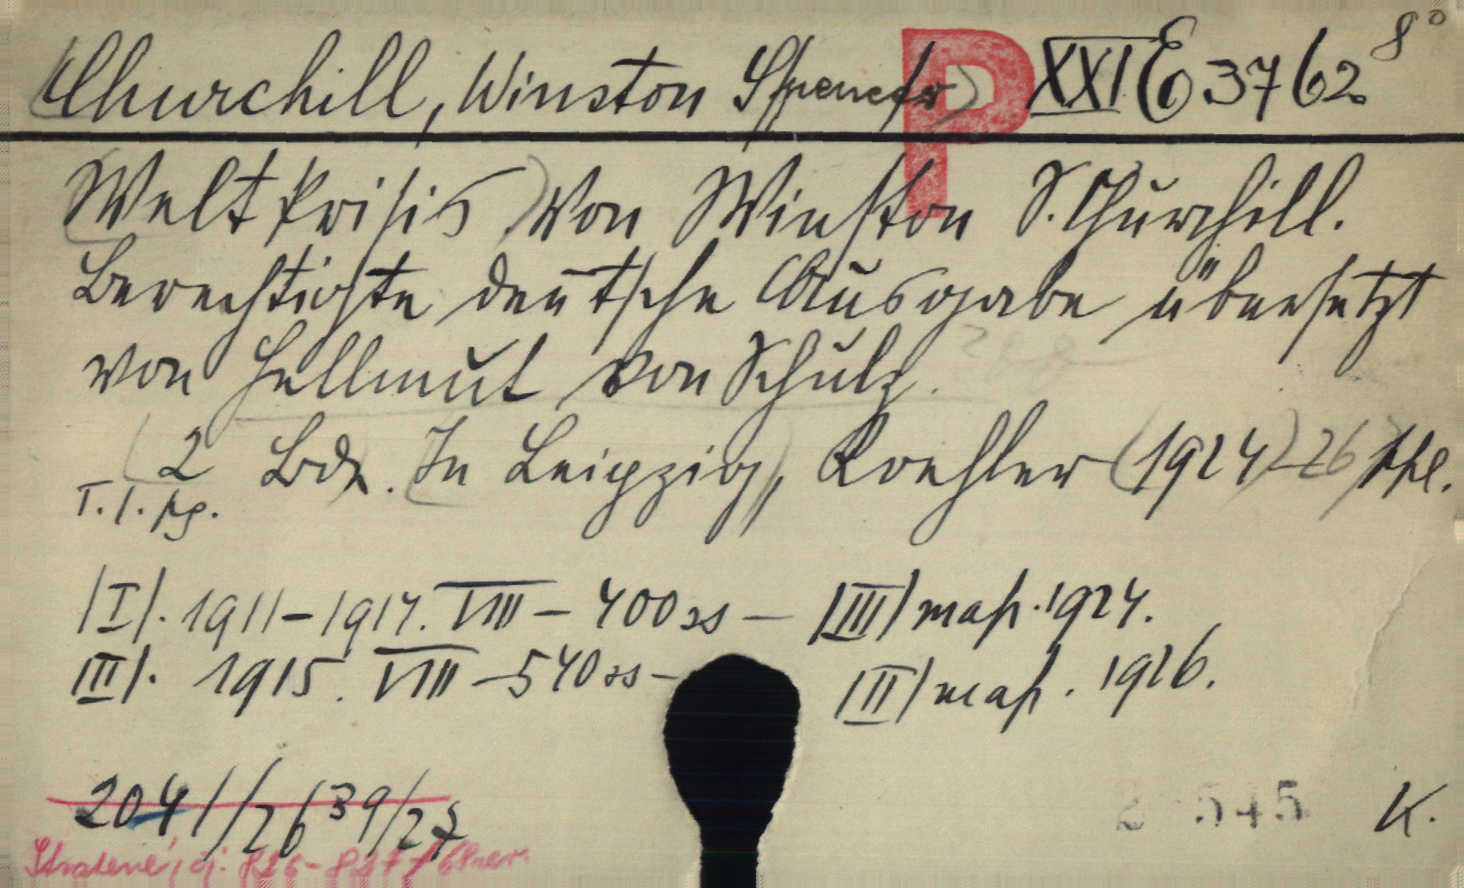 Churchill, Winston Spencer XXI E 3762 8°
P
Weltkrisis Von Winston S. Churchill.
Berechtigte deutsche Ausgabe übersetzt
von Hellmut von Schulz.
2 Bde. In Leipzig, Koehler (1924)-26
T. I.
|I|. 1911-1914. VIII - 400 ss — |III| map. 1924.
III|. 1915. VIII - 540 ss — |II| map. 1926.
2041/26 39/27
545 K.